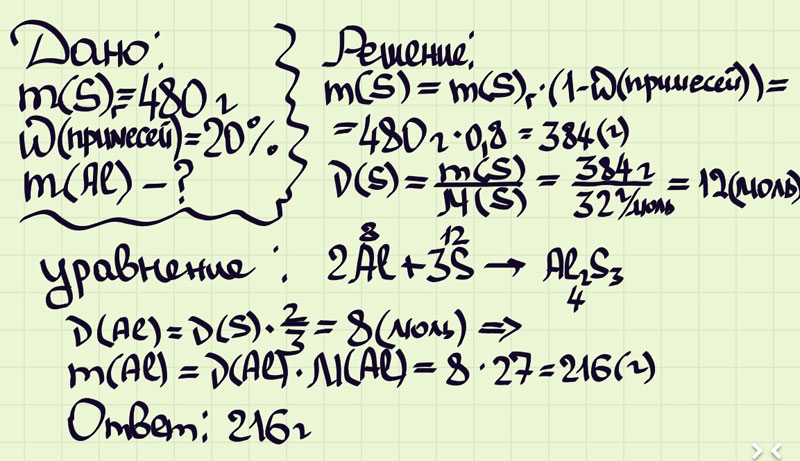 Дано:
m(S)г=480г
ω(примесей)=20%
m(Al) – ?
Решение:
m(S) = m(S)г·(1-ω(примесей))=
=480г·0,8 = 384(г)
ν(S) = m(S)/M(S) = 384г/32г/моль = 12(моль)
8 12
уравнение: 2Al+3S → Al₂S₃
4
ν(Al)=ν(S)·2/3 = 8(моль) =>
m(Al) = ν(Al)·M(Al) = 8·27=216(г)
Ответ: 216г